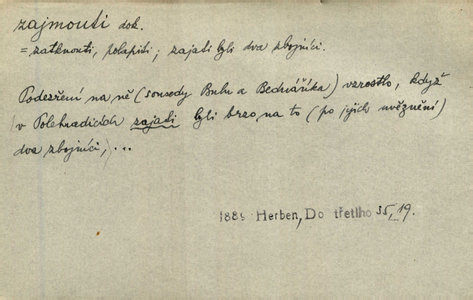 zajmouti dok.
= zatknouti, polapiti; zajati byli dva zbojníci.
Podezření na ně (sousedy Bubu a Bednáříka) vzrostlo, když
(v Polehradicích zajati byli brzo na to (po jejich uvěznění)
dva zbojníci, ...
1889 Herben, Do třetího 35, 19.